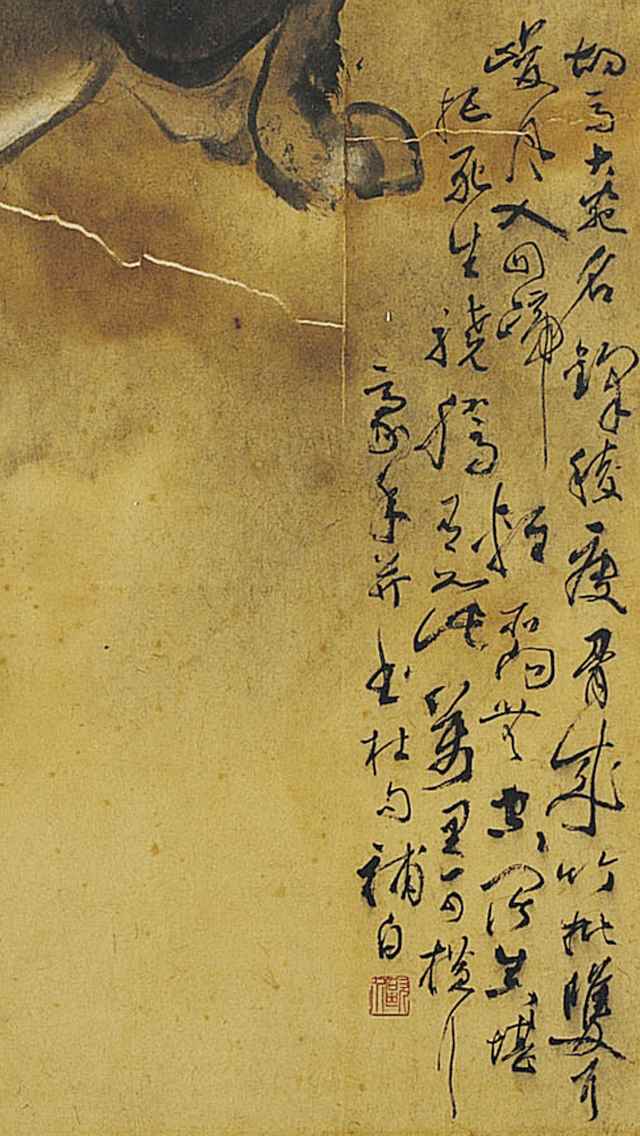 胡馬大宛名鋒稜瘦骨成竹批雙耳
峻風入四蹄輕所向無空闊真堪
托死生驍騰有如此萬里可橫行
豪年并書杜句補白